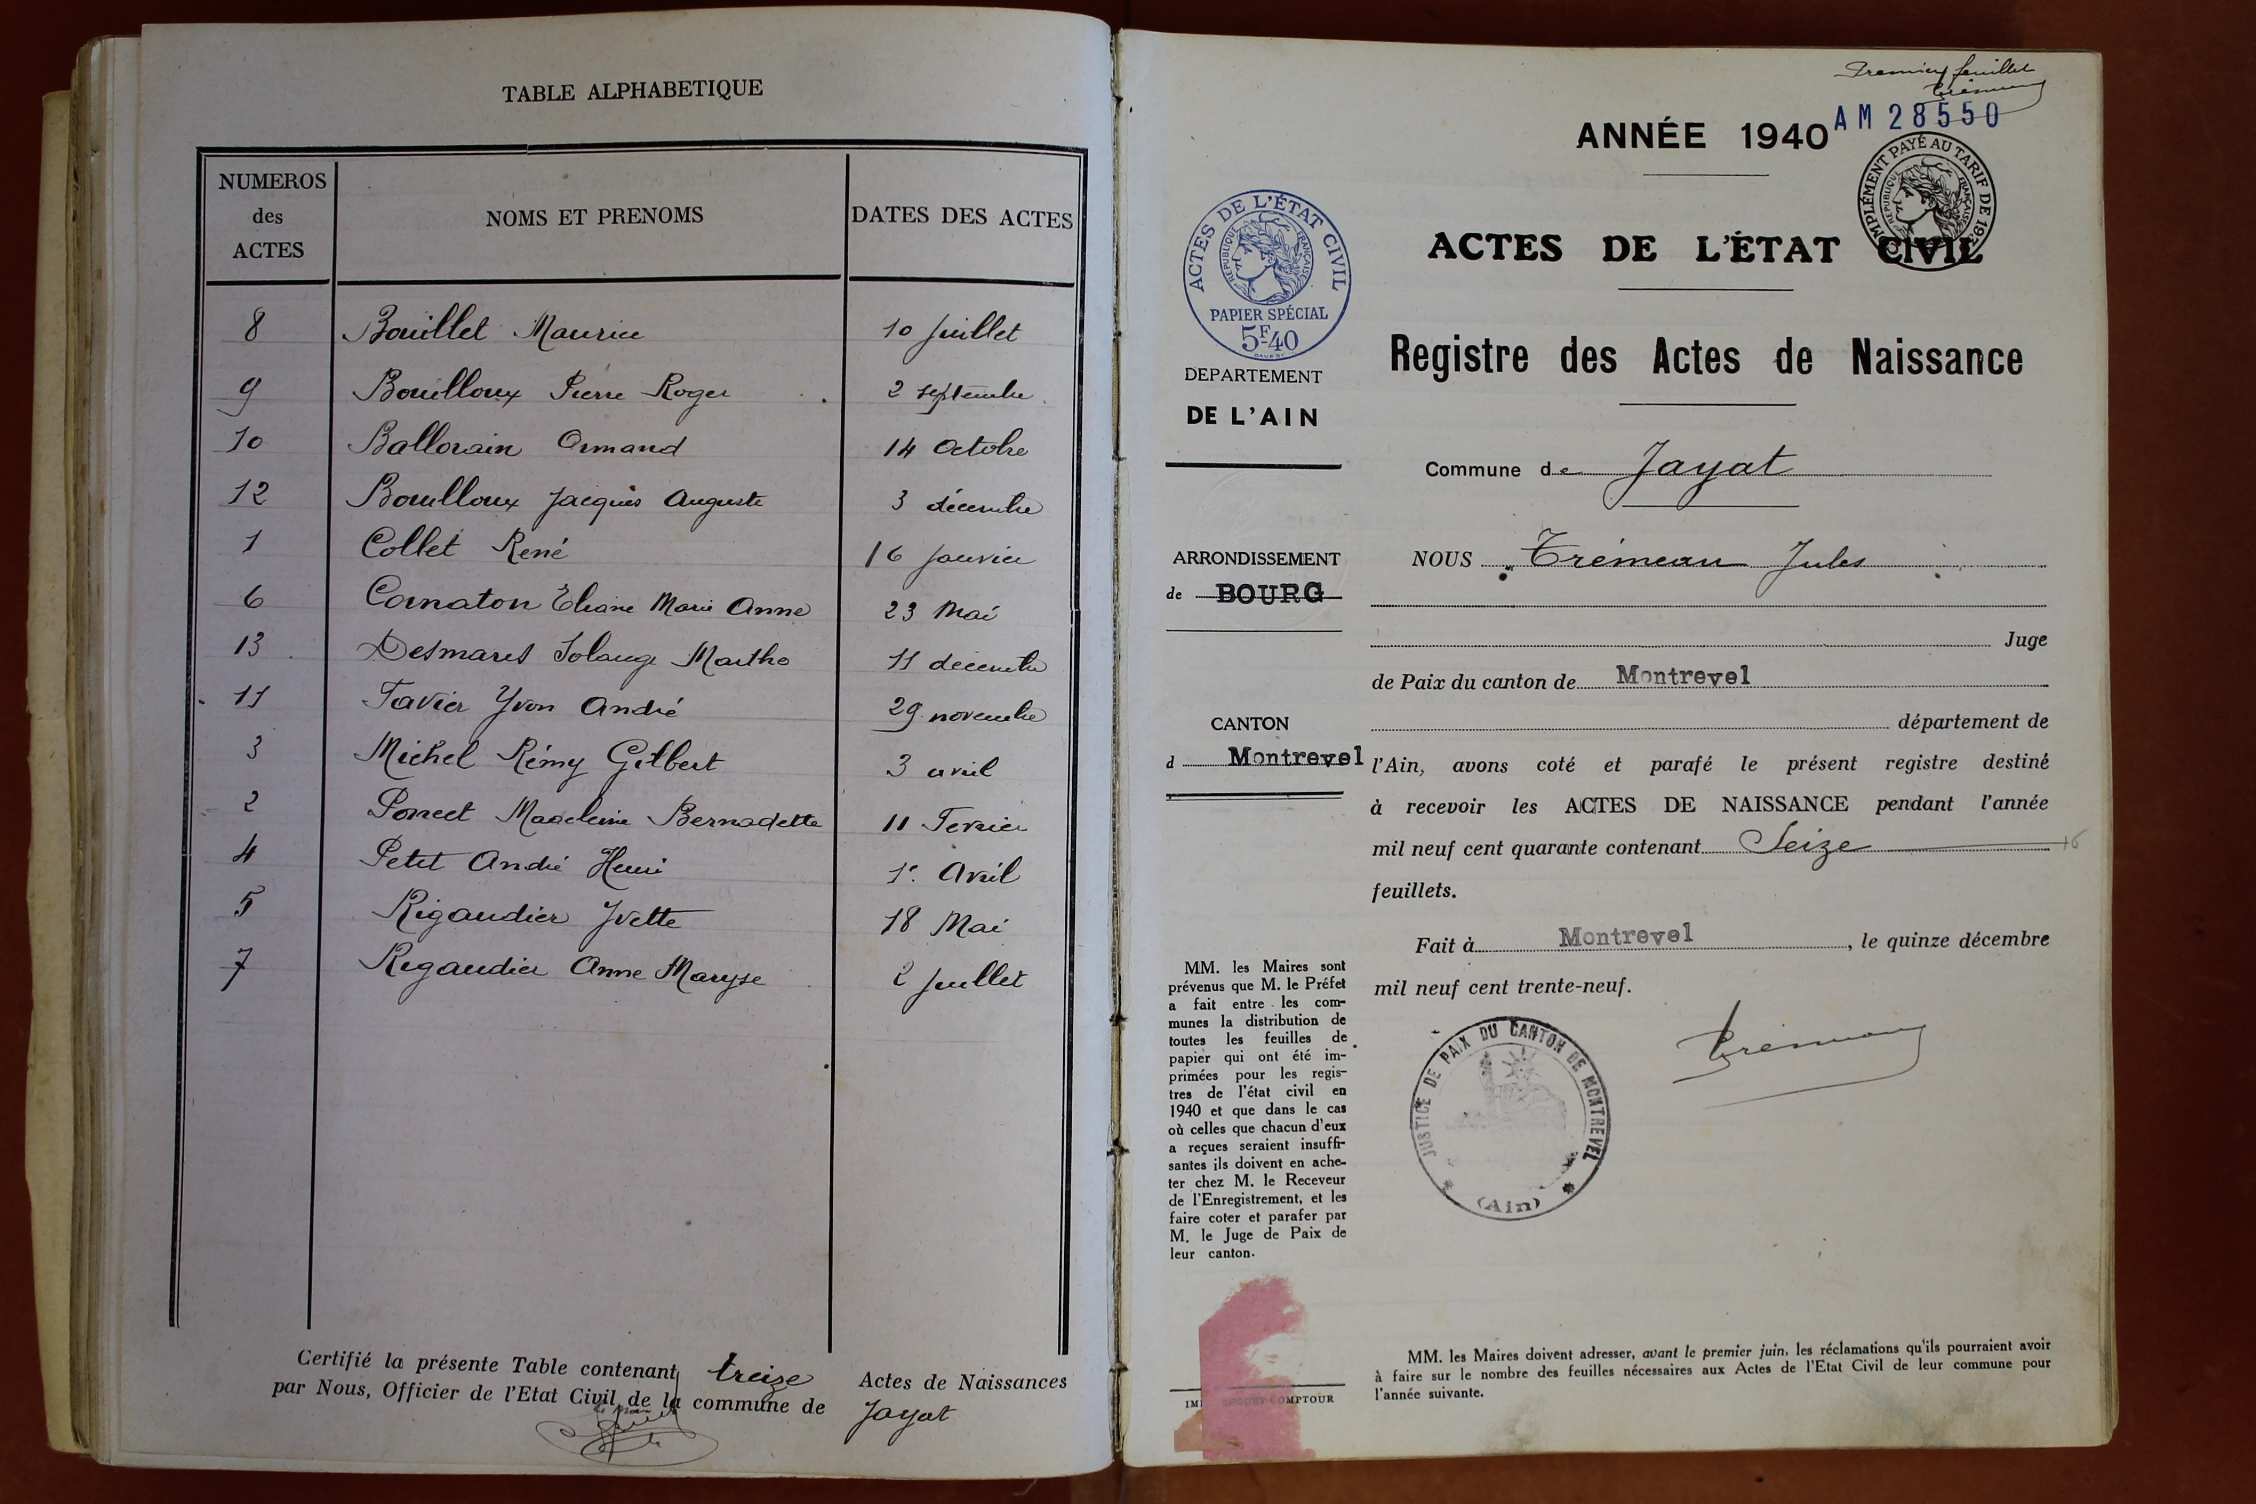 TABLE ALPHABETIQUE
NUMEROS des ACTES NOMS ET PRENOMS DATES DES ACTES
8 Bouillet Maurice 10 Juillet
9 Bouilloux Pierre Roger 2 septembre
10 Ballorain Armand 14 Octobre
12 Bouilloux Jacques Auguste 3 décembre
1 Collet René 16 Janvier
6 Cornaton Eliane Marie Anne 23 Mai
13 Desmaris Solange Marthe 11 décembre
11 Favier Yvon André 29 novembre
3 Michel Rémy Gilbert 3 avril
2 Poncet Madeleine Bernadette 11 Fevrier
4 Petit André Henri 1er Avril
5 Rigaudier Yvette 18 Mai
7 Rigaudier Anne Maryse 2 Juillet
Certifié la présente Table contenant treize Actes de Naissances
par Nous, Officier de l'Etat Civil de la commune de Jayat
Premier feuillet
AM 28550
ANNÉE 1940
COMPLÉMENT PAYÉ AU TARIF DE 193
RÉPUBLIQUE FRANÇAISE
ACTES DE L'ÉTAT CIVIL
RÉPUBLIQUE FRANÇAISE
PAPIER SPÉCIAL
5F40
ACTES DE L'ÉTAT CIVIL
Registre des Actes de Naissance
DEPARTEMENT
DE L'AIN
Commune de Jayat
ARRONDISSEMENT
de BOURG
CANTON
d Montrevel
NOUS Trémeau Jules
Juge
de Paix du canton de Montrevel
département de
l'Ain, avons coté et parafé le présent registre destiné
à recevoir les ACTES DE NAISSANCE pendant l'année
mil neuf cent quarante contenant Seize 16
feuillets.
Fait à Montrevel, le quinze décembre
mil neuf cent trente-neuf.
JUSTICE DE PAIX DU CANTON DE MONTREVEL
(Ain)
MM. les Maires sont
prévenus que M. le Préfet
a fait entre les com-
munes la distribution de
toutes les feuilles de
papier qui ont été im-
primées pour les regis-
tres de l'état civil en
1940 et que dans le cas
où celles que chacun d'eux
a reçues seraient insuffi-
santes ils doivent en ache-
ter chez M. le Receveur
de l'Enregistrement, et les
faire coter et parafer par
M. le Juge de Paix de
leur canton.
COMPTOUR
MM. les Maires doivent adresser, avant le premier juin, les réclamations qu'ils pourraient avoir
à faire sur le nombre des feuilles nécessaires aux Actes de l'Etat Civil de leur commune pour
l'année suivante.